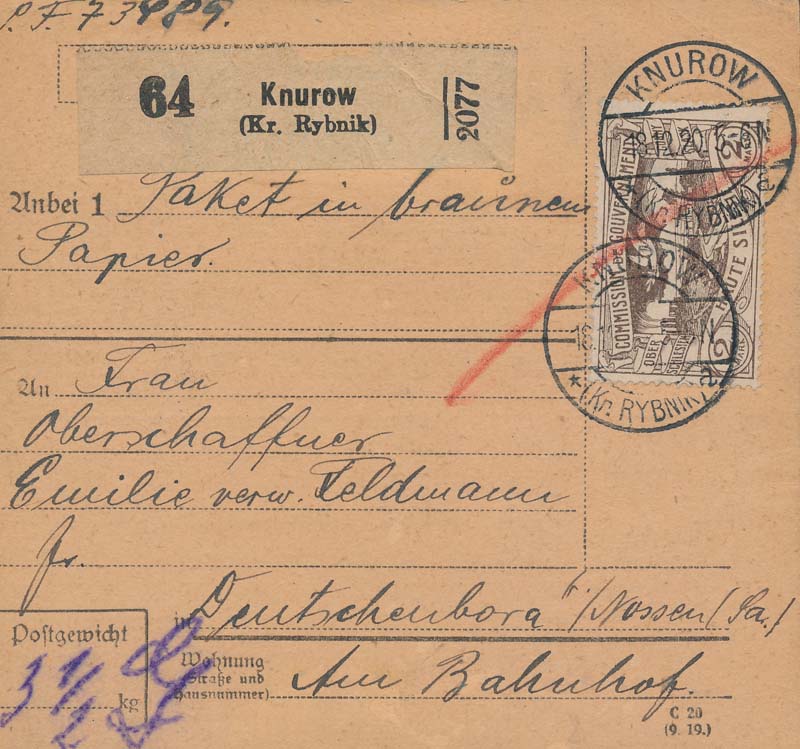 P. F. 73489.
64 Knurow
(Kr. Rybnik)
2077
KNUROW
18.12.20. 5-
(Kr. RYBNIK) a
Anbei 1 Paket in braunem
Papier.
COMMISSION DE GOUVERNEMENT
HAUTE SI
OBER
SCHLESIEN
2
2
MARK
KNUROW
* (Kr. RYBNIK) a
An Frau
Oberschaffner
Emilie verw. Feldmann
fr.
in Deutschenbora b/Nossen (Sa.)
Postgewicht
3 1/2
kg
Wohnung
(Straße und
Hausnummer)
Am Bahnhof.
C 20
(9. 19.)